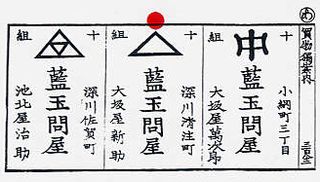 買物獨案内
十組
小網町三丁目
藍玉問屋
大坂屋萬次郎
十組
深川清住町
藍玉問屋
大坂屋新助
十組
深川佐賀町
藍玉問屋
池北屋治助